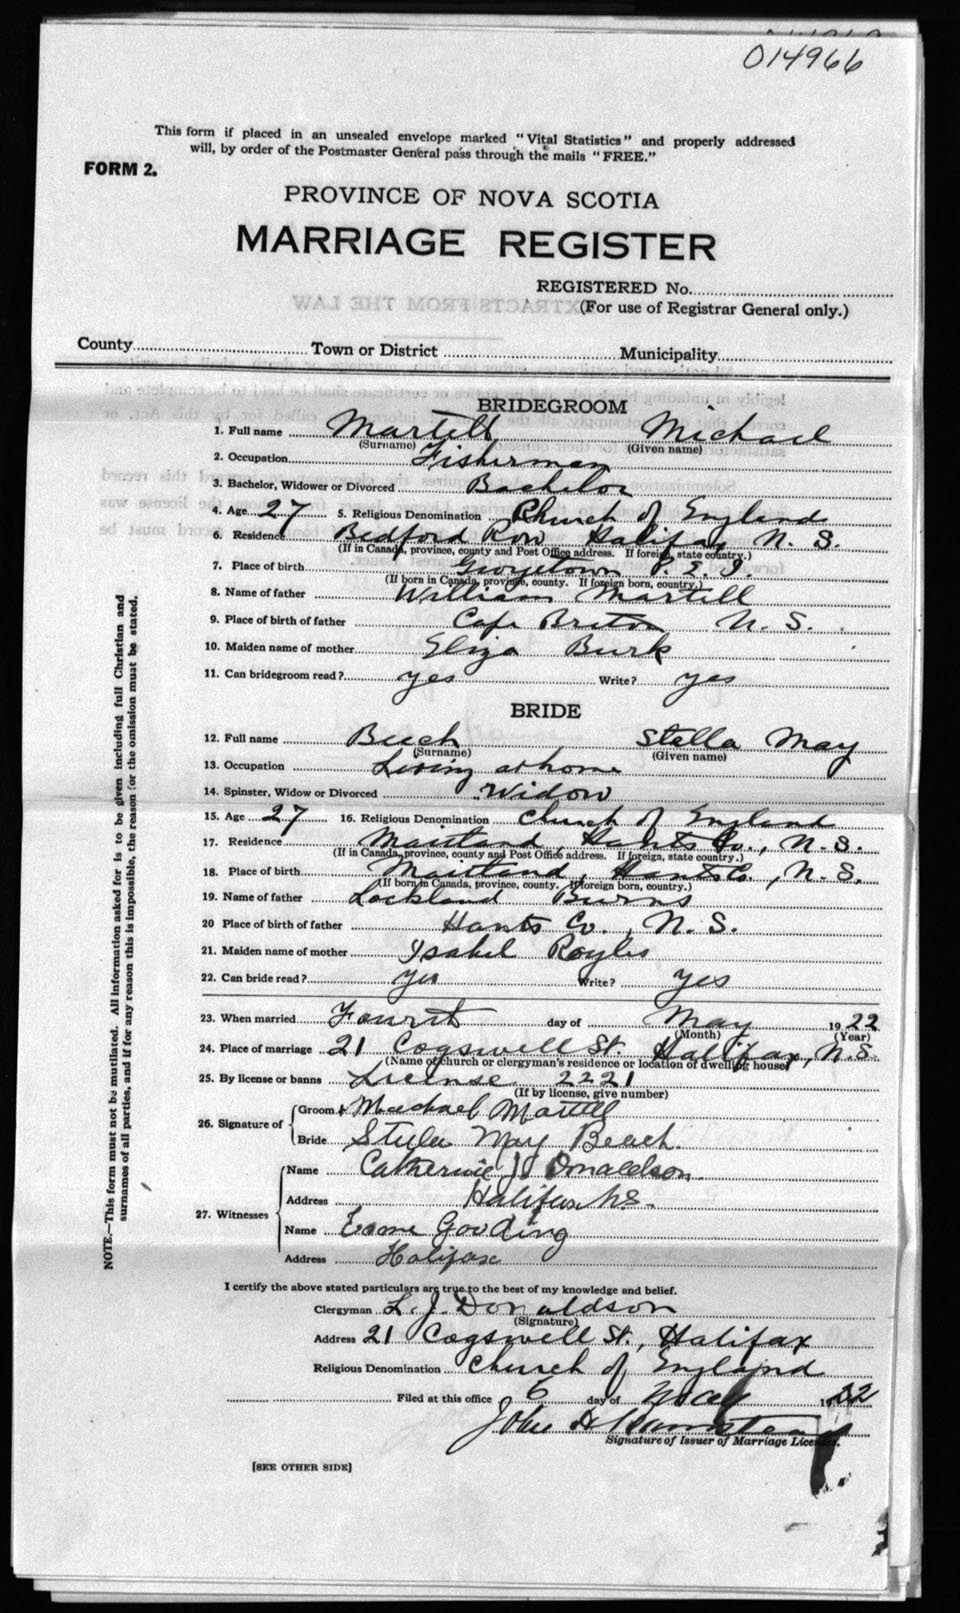 014966
This form if placed in an unsealed envelope marked "Vital Statistics" and properly addressed
will, by order of the Postmaster General pass through the mails "FREE."
FORM 2.
PROVINCE OF NOVA SCOTIA
MARRIAGE REGISTER
REGISTERED No.
(For use of Registrar General only.)
County Town or District Municipality
BRIDEGROOM
1. Full name Martell Michael
(Surname) (Given name)
2. Occupation Fisherman
3. Bachelor, Widower or Divorced Bachelor
4. Age 27 5. Religious Denomination Church of England
6. Residence Bedford Row Halifax N. S.
(If in Canada, province, county and Post Office address. If foreign, state country.)
7. Place of birth Georgetown P. E. I.
(If born in Canada, province, county. If foreign born, country.)
8. Name of father William Martell
9. Place of birth of father Cape Breton N. S.
10. Maiden name of mother Eliza Burk
11. Can bridegroom read? yes Write? yes
BRIDE
12. Full name Beech Stella May
(Surname) (Given name)
13. Occupation Living at home
14. Spinster, Widow or Divorced Widow
15. Age 27 16. Religious Denomination Church of England
17. Residence Maitland, Hants Co., N. S.
(If in Canada, province, county and Post Office address. If foreign, state country.)
18. Place of birth Maitland, Hants Co., N. S.
(If born in Canada, province, county. If foreign born, country.)
19. Name of father Lockland Burns
20 Place of birth of father Hants Co., N. S.
21. Maiden name of mother Isabel Royles
22. Can bride read? yes Write? yes
23. When married Fourth day of May 1922
(Month) (Year)
24. Place of marriage 21 Cogswell St. Halifax, N.S.
(Name of church or clergyman's residence or location of dwelling house)
25. By license or banns License 2221
(If by license, give number)
26. Signature of Groom Michael Martell
Bride Stella May Beach
27. Witnesses Name Catherine J Donaldson
Address Halifax N.S.
Name Gooding
Address Halifax
I certify the above stated particulars are true to the best of my knowledge and belief.
Clergyman L. J. Donaldson
(Signature)
Address 21 Cogswell St., Halifax
Religious Denomination Church of England
Filed at this office 6 day of May 1922
John H
Signature of Issuer of Marriage License.
[SEE OTHER SIDE]
NOTE.—This form must not be mutilated. All information asked for is to be given including full Christian and
surnames of all parties, and if for any reason this is impossible, the reason for the omission must be stated.